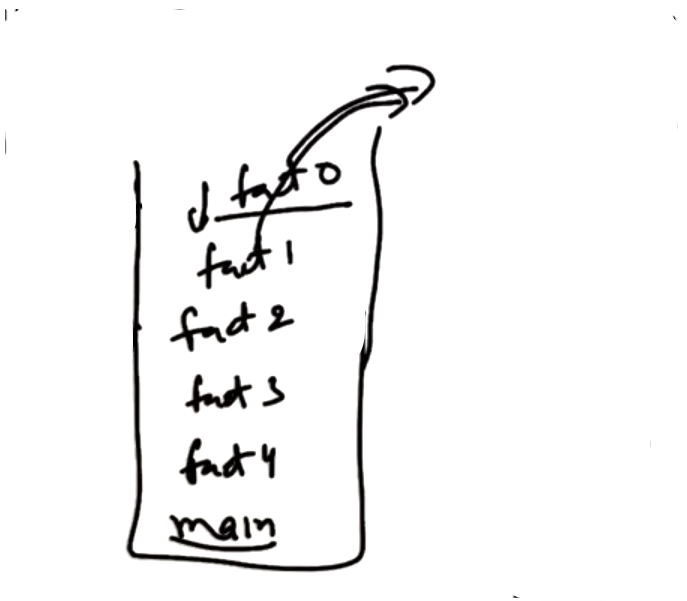 fact 0
fact 1
fact 2
fact 3
fact 4
main